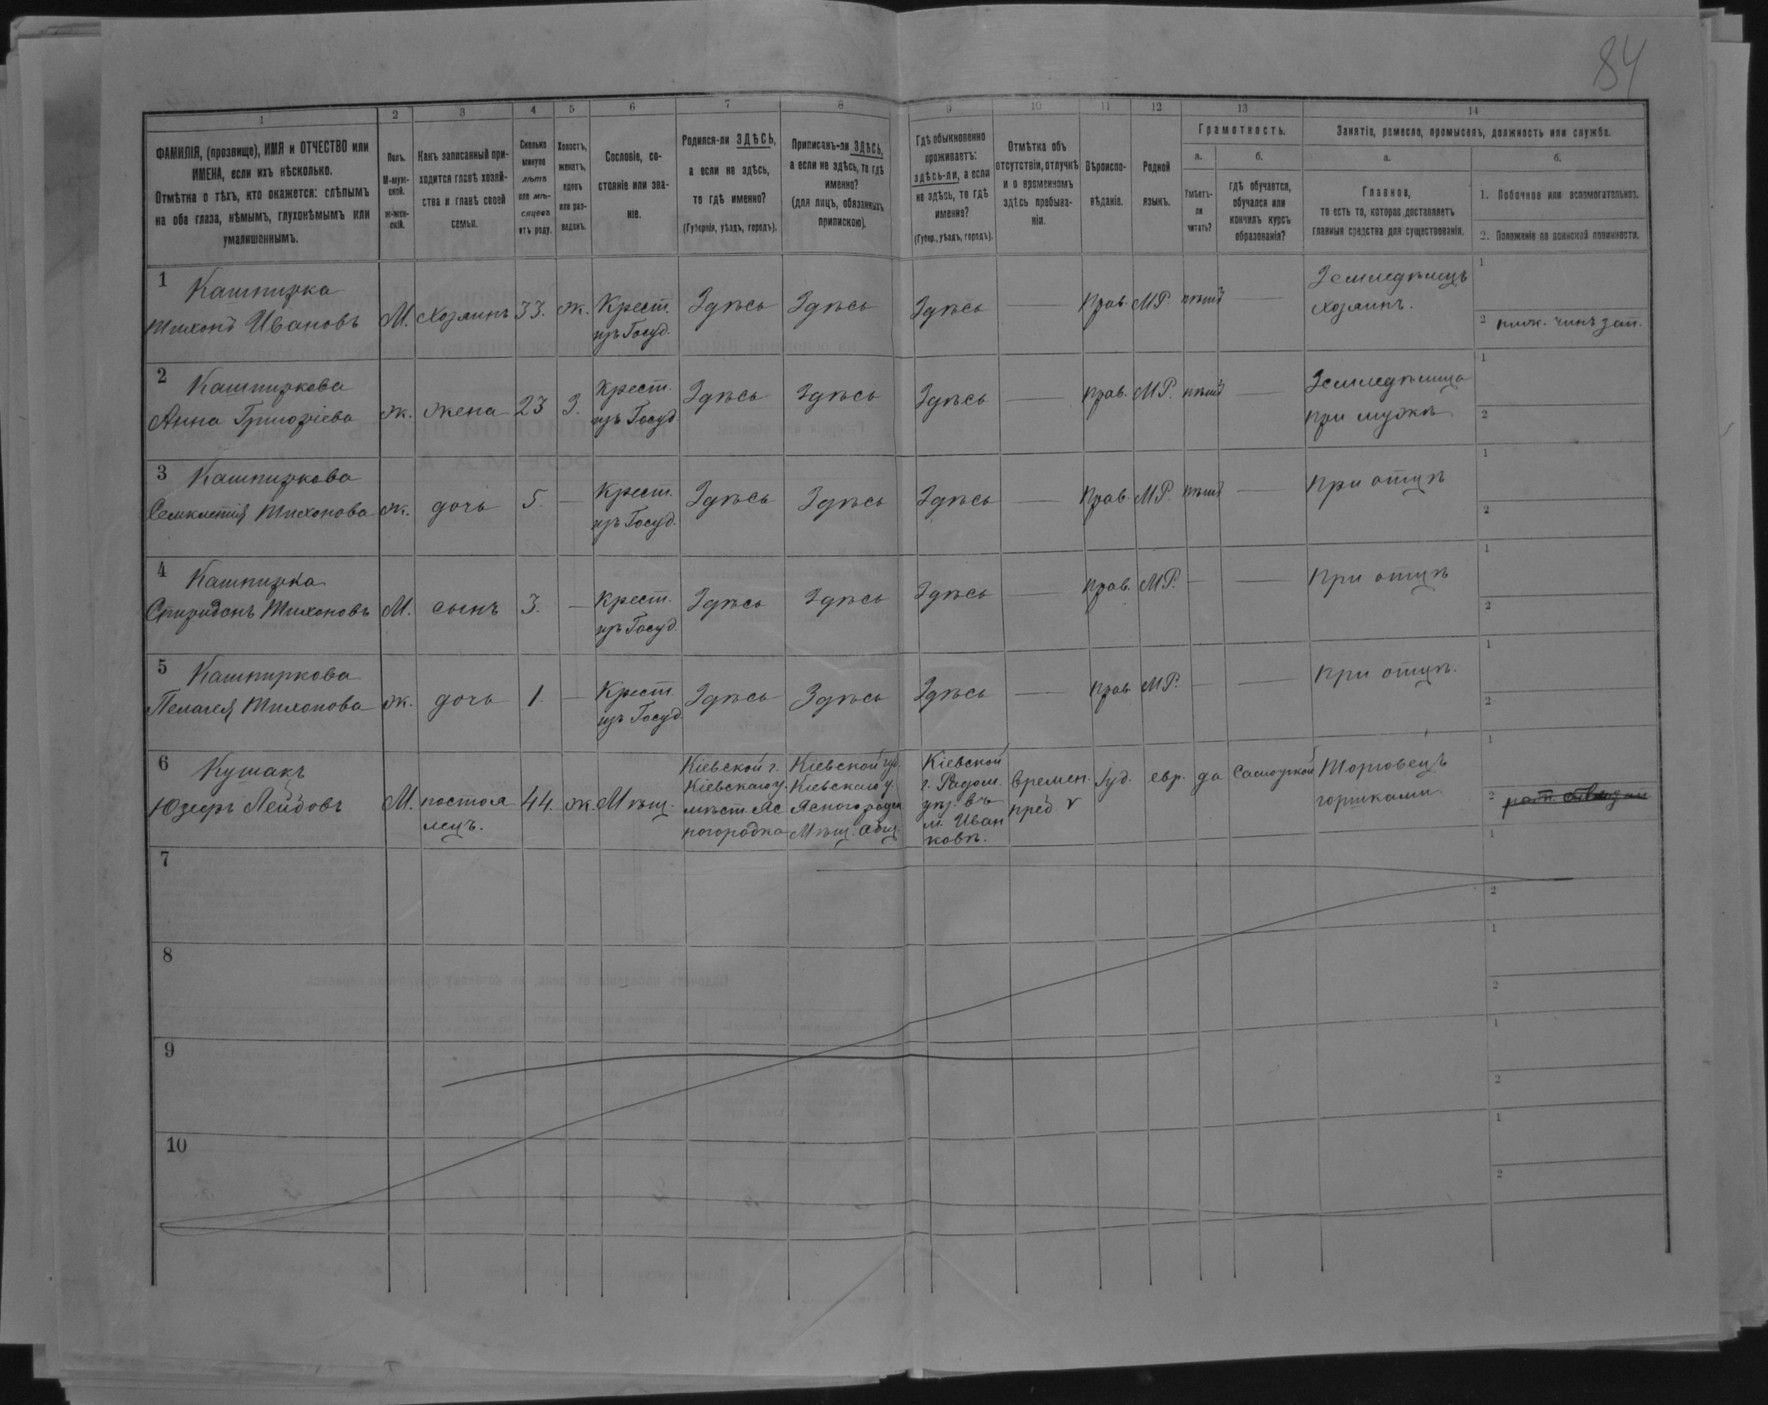 84
1 2 3 4 5 6 7 8 9 10 11 12 13 14
ФАМИЛІЯ, (прозвище), ИМЯ и ОТЧЕСТВО или
ИМЕНА, если ихъ нѣсколько.
Отмѣтка о тѣхъ, кто окажется: слѣпымъ
на оба глаза, нѣмымъ, глухонѣмымъ или
умалишеннымъ.
Полъ.
М-муж-
ской.
ж-жен-
скій.
Какъ записанный при-
ходится главѣ хозяй-
ства и главѣ своей
семьи.
Сколько
минуло
лѣтъ
или мѣ-
сяцевъ
отъ роду.
Холостъ,
женатъ,
вдовъ
или раз-
веденъ.
Сословіе, со-
стояніе или зва-
ніе.
Родился-ли ЗДѢСЬ,
а если не здѣсь,
то гдѣ именно?
(Губернія, уѣздъ, городъ).
Приписанъ-ли ЗДѢСЬ,
а если не здѣсь, то гдѣ
именно?
(для лицъ, обязанныхъ
припискою).
Гдѣ обыкновенно
проживаетъ:
здѣсь-ли, а если
не здѣсь, то гдѣ
именно?
(Губер., уѣздъ, городъ).
Отмѣтка объ
отсутствіи, отлучкѣ
и о временномъ
здѣсь пребыва-
ніи.
Вѣроиспо-
вѣданіе.
Родной
языкъ.
Грамотность.
а.
Умѣетъ-
ли
читать?
б.
гдѣ обучается,
обучался или
кончилъ курсъ
образованія?
Занятіе, ремесло, промыселъ, должность или служба.
а.
Главное,
то есть то, которое доставляетъ
главныя средства для существованія.
б.
1. Побочное или вспомогательное.
2. Положеніе по воинской повинности.
1 Кашпирка
Тихонъ Ивановъ М. Хозяинъ 33. ж. Крест.
изъ Госуд. Здѣсь Здѣсь Здѣсь — Прав. МР. нѣтъ — Земледѣлецъ
хозяинъ. 1
2 ниж. чинъ зап.
2 Кашпиркова
Анна Григоріева ж. жена 23 З. Крест.
изъ Госуд Здѣсь Здѣсь Здѣсь — прав. МР. нѣтъ — Земледѣлица
при мужѣ 1
2
3 Кашпиркова
Секлетія Тихонова ж. дочь 5. — Крест.
изъ Госуд. Здѣсь Здѣсь Здѣсь — прав. МР. нѣтъ — при отцѣ 1
2
4 Кашпирка
Спиридонъ Тихоновъ М. сынъ 3. — крест.
изъ Госуд. Здѣсь Здѣсь Здѣсь — прав. МР. — — при отцѣ 1
2
5 Кашпиркова
Пелагея Тихонова ж. дочь 1. — Крест.
изъ Госуд. Здѣсь Здѣсь Здѣсь — прав МР. — — при отцѣ. 1
2
6 Кушакъ
Юзефъ Лейбовъ М. постоя
лецъ. 44. ж. Мѣщ.
Кіевской г.
Кіевскаго у.
мѣст. Яс
ногородка
Кіевской губ
Кіевскаго у.
Ясногородск
Мѣщ. Общ
Кіевской
г. Радом.
уѣз. въ
м. Иван
ковѣ.
времен.
преб v Іуд. евр. да Самоучкой Торговецъ
горшками 1
2
7 1
2
8 1
2
9 1
2
10 1
2